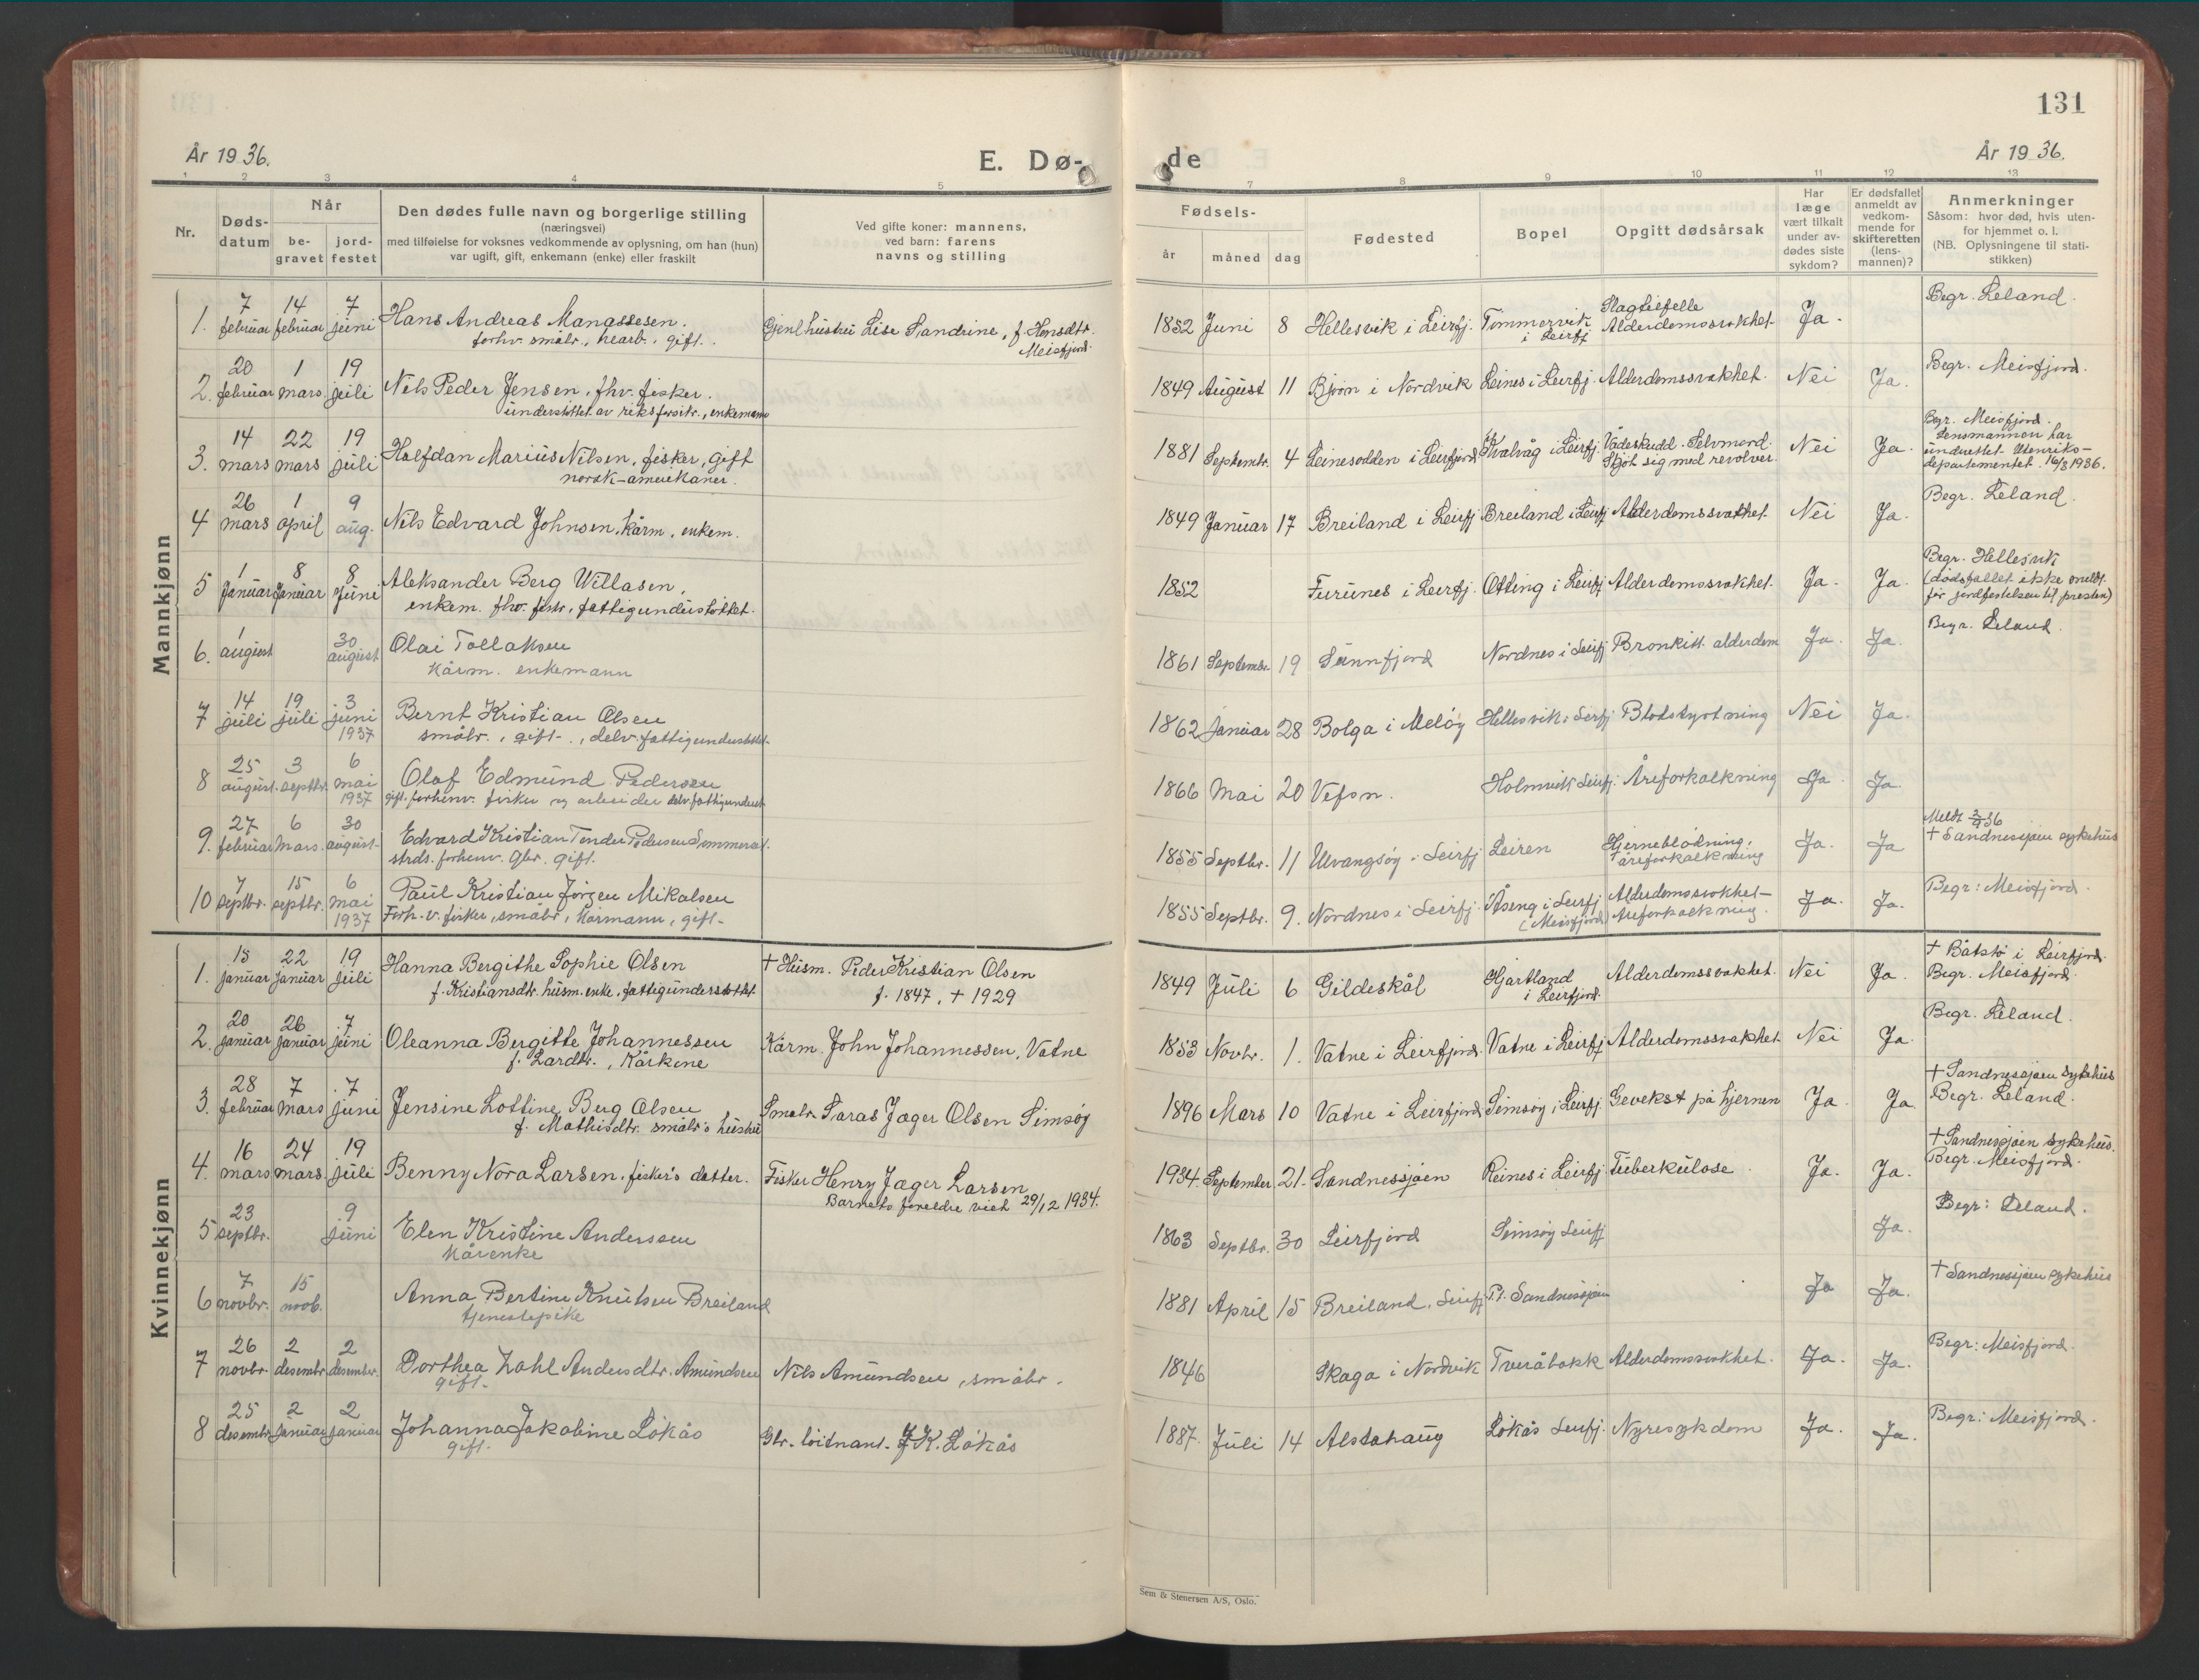 131
År 1936.
E. Dø-
de
År 1936.
1 2 3 4 5 7 8 9 10 11 12 13
Nr.
Døds-
datum
Når
be-
gravet
jord-
festet
Den dødes fulle navn og borgerlige stilling
(næringsvei)
med tilføielse for voksnes vedkommende av oplysning, om han (hun)
var ugift, gift, enkemann (enke) eller fraskilt
Ved gifte koner: mannens,
ved barn: farens
navns og stilling
Fødsels-
år måned dag
Fødested
Bopel
Opgitt dødsårsak
Har
læge
vært tilkalt
under av-
dødes siste
sykdom?
Er dødsfallet
anmeldt av
vedkom-
mende for
skifteretten
(lens-
mannen)?
Anmerkninger
Såsom: hvor død, hvis uten-
for hjemmet o. l.
(NB. Oplysningene til stati-
stikken)
Mannkjønn
1. 7 februar 14 februar 7 juni Hans Andreas Manassesen.
forhv. småbr., gift.
Lise Sandrine, f. Hansdtr.
Meisfjord.
1852 Juni 8 Hellesvik i Leirfj. Tømmervik
i Leirfj
Slagtilfelle
Alderdomssvakhet. Ja. Begr. Leland.
2. 20 februar 1 mars. 19 juli Nils Peder Jensen, fhv. fisker.
understøttet av enkemann
1849 August 11 Bjørn i Nordvik Leines i Leirfj. Alderdomssvakhet. Nei Ja. Begr. Meisfjord.
3. 14 mars 22 mars 19 juli Halfdan Marius Nilsen, fisker, gift
norsk-amerikaner.
1881 Septembr. 4 Leinesodden i Leirfjord Kvalvåg i Leirfj. Vådeskudd. Selvmord.
Skjøt sig med revolver. Nei Ja. Begr. Meisfjord.
Lensmannen har
underrettet Utenriks-
departementet 16/3 1936.
4 26 mars 1 april 9 aug. Nils Edvard Johnsen, kårm., enkem.
1849 Januar 17 Breiland i Leirfj Breiland i Leirfj Alderdomssvakhet. Nei Ja. Begr. Leland.
5 1 Januar 8 Januar 8 Juni Aleksander Berg Willasen,
enkem. fhv. fisk., fattigunderstøttet.
1852 Furunes i Leirfj. Otting i Leirfj Alderdomssvakhet. Ja. Ja. Begr. Hellesvik
(dødsfallet ikke meldt
før jordfestelsen til presten)
6. 1 august 30 august Olai Tollaksen
Kårm. enkemann
1861 Septembr. 19 Sunnfjord Nordnes i Leirfj Bronkitt. alderdom Ja. Ja. Begr. Leland.
7 14 juli 19 juli 3 juni 1937 Bernt Kristian Olsen
småbr., gift., delv. fattigunderstøttet.
1862 Januar 28 Bolga i Meløy Hellesvik i Leirfj Blodstyrtning Nei Ja.
8 25 august. 3 septbr. 6 mai 1937 Olaf Edmund Pedersen
gift. forhenv. fisker og arbeider delv. fattigunderst.
1866 Mai 20 Vefsn. Holmvik Leirfj. Åreforkalkning Ja. Ja.
9. 27 februar 6 Mars. 30 august. Edvard Kristian Tender Pedersen
strds. forhenv. gbr. gift.
1855 Septbr. 11 Ulvangsøy i Leirfj Leiren Hjerneblødning,
åreforkalkning Ja. Ja
† Sandnessjøen sykehus
10 7 septbr. 15 septbr. 6 mai 1937 Paul Kristian Jørgen Mikalsen
Forh. v. fisker, småbr, kårmann, gift.
1855 Septbr. 9. Nordnes i Leirfj. Åseng i Leirfj
(Meisfjord)
Alderdomssvakhet-
Åreforkalkning. Ja. Ja. Begr: Meisfjord.
Kvinnekjønn
1. 15 Januar 22 Januar 19 Juli Hanna Bergithe Sophie Olsen
f. Kristiansdtr. husm. enke, fattigunderstøttet.
† Husm. Peder Kristian Olsen
f. 1847. † 1929
1849 Juli 6 Gildeskål Hjartland
i Leirfjord.
Alderdomssvakhet. Nei Ja. † Båtstø i Leirfjord.
Begr. Meisfjord.
2. 20 Januar 26 Januar 7 juni Oleanna Bergitte Johannessen
f. Larsdtr., Kårkone
Kårm. John Johannessen, Vatne
1853 Novbr. 1. Vatne i Leirfjord. Vatne i Leirfj Alderdomssvakhet Nei Ja. Begr. Leland.
3. 28 februar 7 mars 7 juni Jensine Lottine Berg Olsen
f. Mathisdtr. småbr's hustru
Småbr. Saras Jæger Olsen Simsøy
1896 Mars 10 Vatne i Leirfjord Simsøy i Leirfj. Gevekst på hjernen Ja. Ja. † Sandnessjøen sykehus
Begr. Leland.
4. 16 mars 24 mars. 19 juli Benny Nora Larsen, fisker's datter.
Fisker Henry Jæger Larsen
Barnets foreldre viet 29/12 1934.
1934. September 21. Sandnessjøen Reines i Leirfj Tuberkulose. Ja. Ja. † Sandnessjøen sykehus.
Begr. Meisfjord.
5 23 septbr. 9 juni Elen Kristine Anderssen
Kårenke
1863 Septbr. 30 Leirfjord Simsøy Leirfj Ja. Begr: Leland.
6 7 novbr. 15 novb. Anna Bertine Knutsen Breiland
tjenestepike
1881 April 15 Breiland, Leirfj P.t. Sandnessjøen Ja Ja. † Sandnessjøen sykehus
7 26 novbr. 2 desembr. 2 desembr. Dorthea Zahl Andersdtr. Amundsen
gift.
Nils Amundsen, småbr.
1846 Skaga i Nordvik Tveråbakk Alderdomssvakhet. Ja. Ja. Begr: Meisfjord.
8 25 desembr. 2 Januar 2 Januar Johanna Jakobine Løkås
gift.
Gbr. løitnant. J.K. Løkås
1887. Juli 14 Alstahaug Løkås Leirfj. Nyresykdom Ja. Ja. Begr: Meisfjord.
Sem & Stenersen A/S, Oslo.